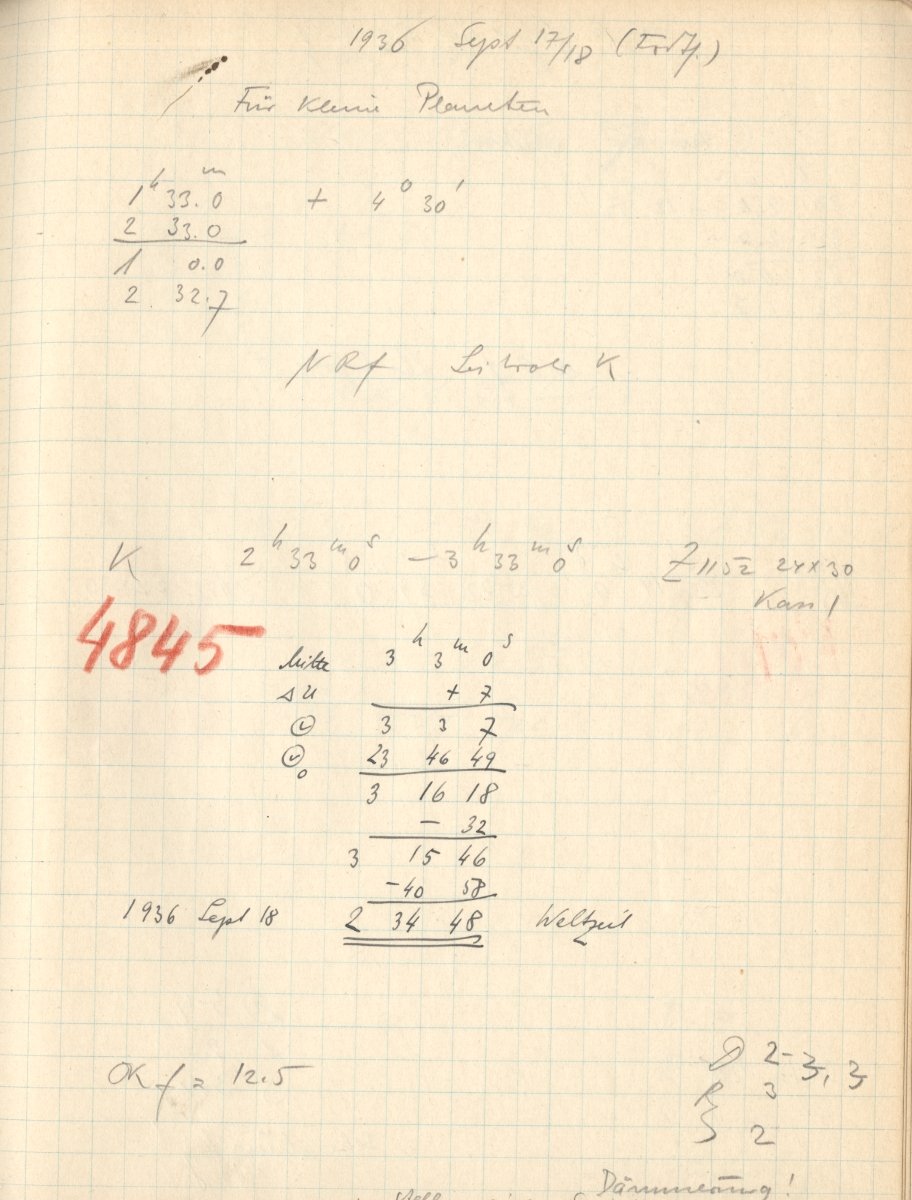 1936 Sept 17/18 (Fortf.)
Für kleine Planeten
1h 33.m0 + 4° 30'
2 33.0
1 0.0
2 32.7
NRf K
K 2h 33m 0s – 3h 33m 0s Z 1152 24x30
Kass 1
4845
Mitte 3h 3m 0s
ΔU + 7
3 3 7
23 46 49
3 16 18
– 32
3 15 46
–40 58
1936 Sept 18 2 34 48 Weltzeit
OK f = 12.5
D 2–3, 3
R 3
3 2
Dämmerung!